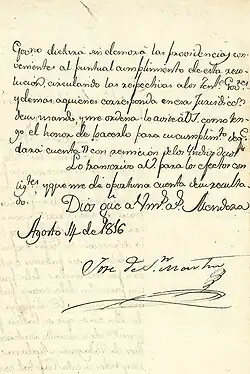 Gpoño dictara sin demora las providencias con
vementes al puntual cumplimiento de esta reso
lucion, circulando las respectivas a los Ten.^s Gob.^s
y demas a quienes corresponda en esa Jurisdicc.^n
de su mando y me ordena lo avise a V. como ten
go el honor de hacerlo para su cumplimto
dará cuenta con remision de los
Lo transcrivo a V. para los efectos con
sig.^tes y que me dé oportuna cuenta de su resulta
do.
Dios gue a V. m.^s a.^s Mendoza
Agosto 14 de 1816
Jose de S.^n Martin